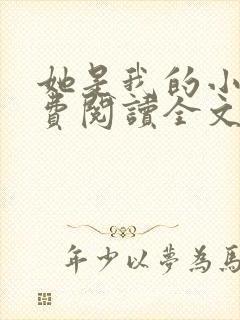 她是我的小
費閱讀全文
年少以夢為馬